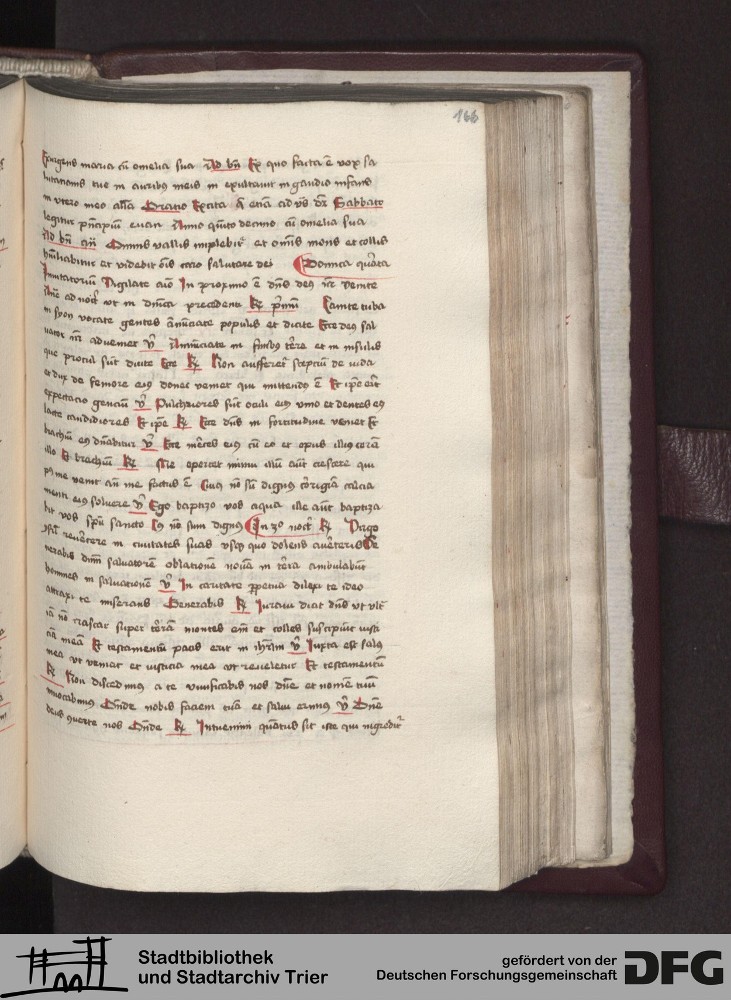 166
Exurgens maria cū omelia sua Ad bn̄ Ex quo facta ē vox sa
lutationis tue in auribus meis exultauit in gaudio infans
in vtero meo all'a Oratio Excita Sabbato
legitur pncipiū euan Anno quīto decimo cū omelia sua
Ad bn̄ an̄ Omnis vallis implebit' et omīs mons et collis
hūiliabitur et videbit oīs caro salutare dei Domīca quarta
Inuitatoriū Vigilate aīo In proximo ē dn̄s deus nr̄ venite
ad noct' vt in dn̄ica precedenti R' prīmū Canite tuba
in syon vocate gentes ānūciate populis et dicite Ecce deus sal
uator nr̄ adueniet V' Annūciate in finibus tr̄re et in insulis
que procul sūt dicite Ecce R' Non aufferet' sceptrū de iuda
et dux de femore eius donec veniet qui mittendus ē Et ip̄e erit
expectacio genciū V' Pulchriores sūt oculi eius vino et dentes eius
lacte candidiores Et ip̄e R' Ecce dn̄s in fortitudine veniet Et
brachiū eius dn̄abitur V' Ecce m̄ces eius cū eo et opus illius corā
illo Et brachiū R' Me oportet minui illū aūt crescere qui
post me venit an̄ me factus ē Cuius nō sū dignus corrigiā calcia
menti eius soluere V' Ego baptizo vos aqua ille aūt baptiza
bit vos spū sancto Cuius nō sum dignus In 3o noct' R' Virgo
isr̄l reuertere in ciuitates suas vsque quo dolens auerteris Ge
nerabis dn̄m saluatorē oblationē nouā in tr̄ra ambulabūt
homines in saluationē V' In caritate ppetua dilexi te ideo
attraxi te miserans Generabis R' Iuraui dicit dn̄s vt vlt'
iā nō irascar super tr̄rā montes em̄ et colles suscipiūt iusti
ciā meā Et testamentū pacis erit in ihrl̄m V' Iuxta est salus
mea vt veniat et iusticia mea vt reueletur Et testamentū
R' Non discedimus a te viuificabis nos dn̄e et nomē tuū
inuocabimus Ostende nobis faciem tuā et salui erimus V' Dn̄e
deus conuerte nos Ostende R' Intuemini quātus sit iste qui ingredit'
Stadtbibliothek
und Stadtarchiv Trier
gefördert von der
Deutschen Forschungsgemeinschaft
DFG